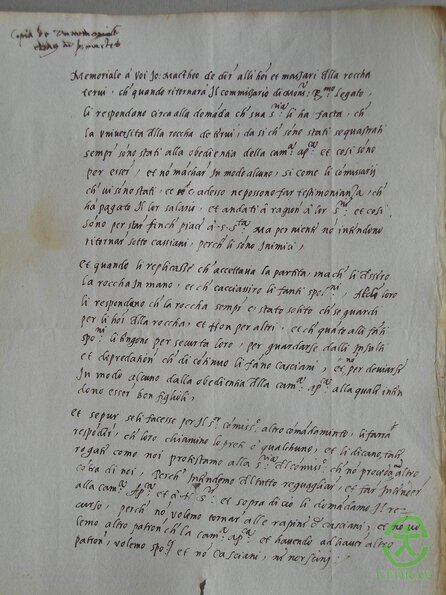 Copia de
Memoriale à Voi Jo: Mattheo de dir' alli hoi et massari dlla roccha
tervi, ch' quando ritornarà Il commissario di Mons.r R.mo legato,
li respondono circa alla domãda ch' sua S.ria li ha facta, ch'
la università dlla roccha de tervi, da si ch' sono stati sequestrati
sempr' sono stati alla obedientia della cam.ra ap.ca et cosi sono
per esser', et nõ machar' In modo alcuno, si come li comissarij
ch' vi sono stati, et adesso ne possono far testimonianza, ch'
hã pagato Il lor salario, et andati à ragion' à lor S.rie et cosi
sono per star' finch' piace à S. S.tà Ma per niente nõ intendono
ritornar sotto casciani, perch' li sono Inimici,
et quando li replicasse ch' accettava la partita, mach' li dessero
la roccha In mano, et ch' cacciassero li fanti loro
li respondano ch' la roccha sempr' e stato solito ch' se guardi
per li hoi dlla roccha, et nõ per altri, et ch' quãto alli fãti
li tengono per securtà loro, per guardarse dalli Insulti
et depredation' ch' di continuo li fãno casciani, et nõ per deviarse
In modo alcuno dalla obedientia dlla cam.ra ap.ca alla quali intẽ
dono esser' ben figlioli,
et se pur seli facesse per Il S.r comiss.o altro comãdamento, li farrà
responder', ch' loro chiamino lo pret' o qualcuno, et li dicano,
rogati como noi protestamo alla S.ria dl comiss.o ch' nõ proceda altro
cotra di noi, Perch' intendemo dl tutto reguagliar', et far intender'
alla cam.ra Ap.ca et à S. S.tà et sopra di ciò li domãdamo Il re-
curso, perch' nõ volemo tornar' alle rapine d casciani, et nõ vo
lemo altro patron' ch' la cam.ra ap.ca et havendo ad haver' altro
patron', volemo et nõ Casciani, nè nersini:
CEDRAV